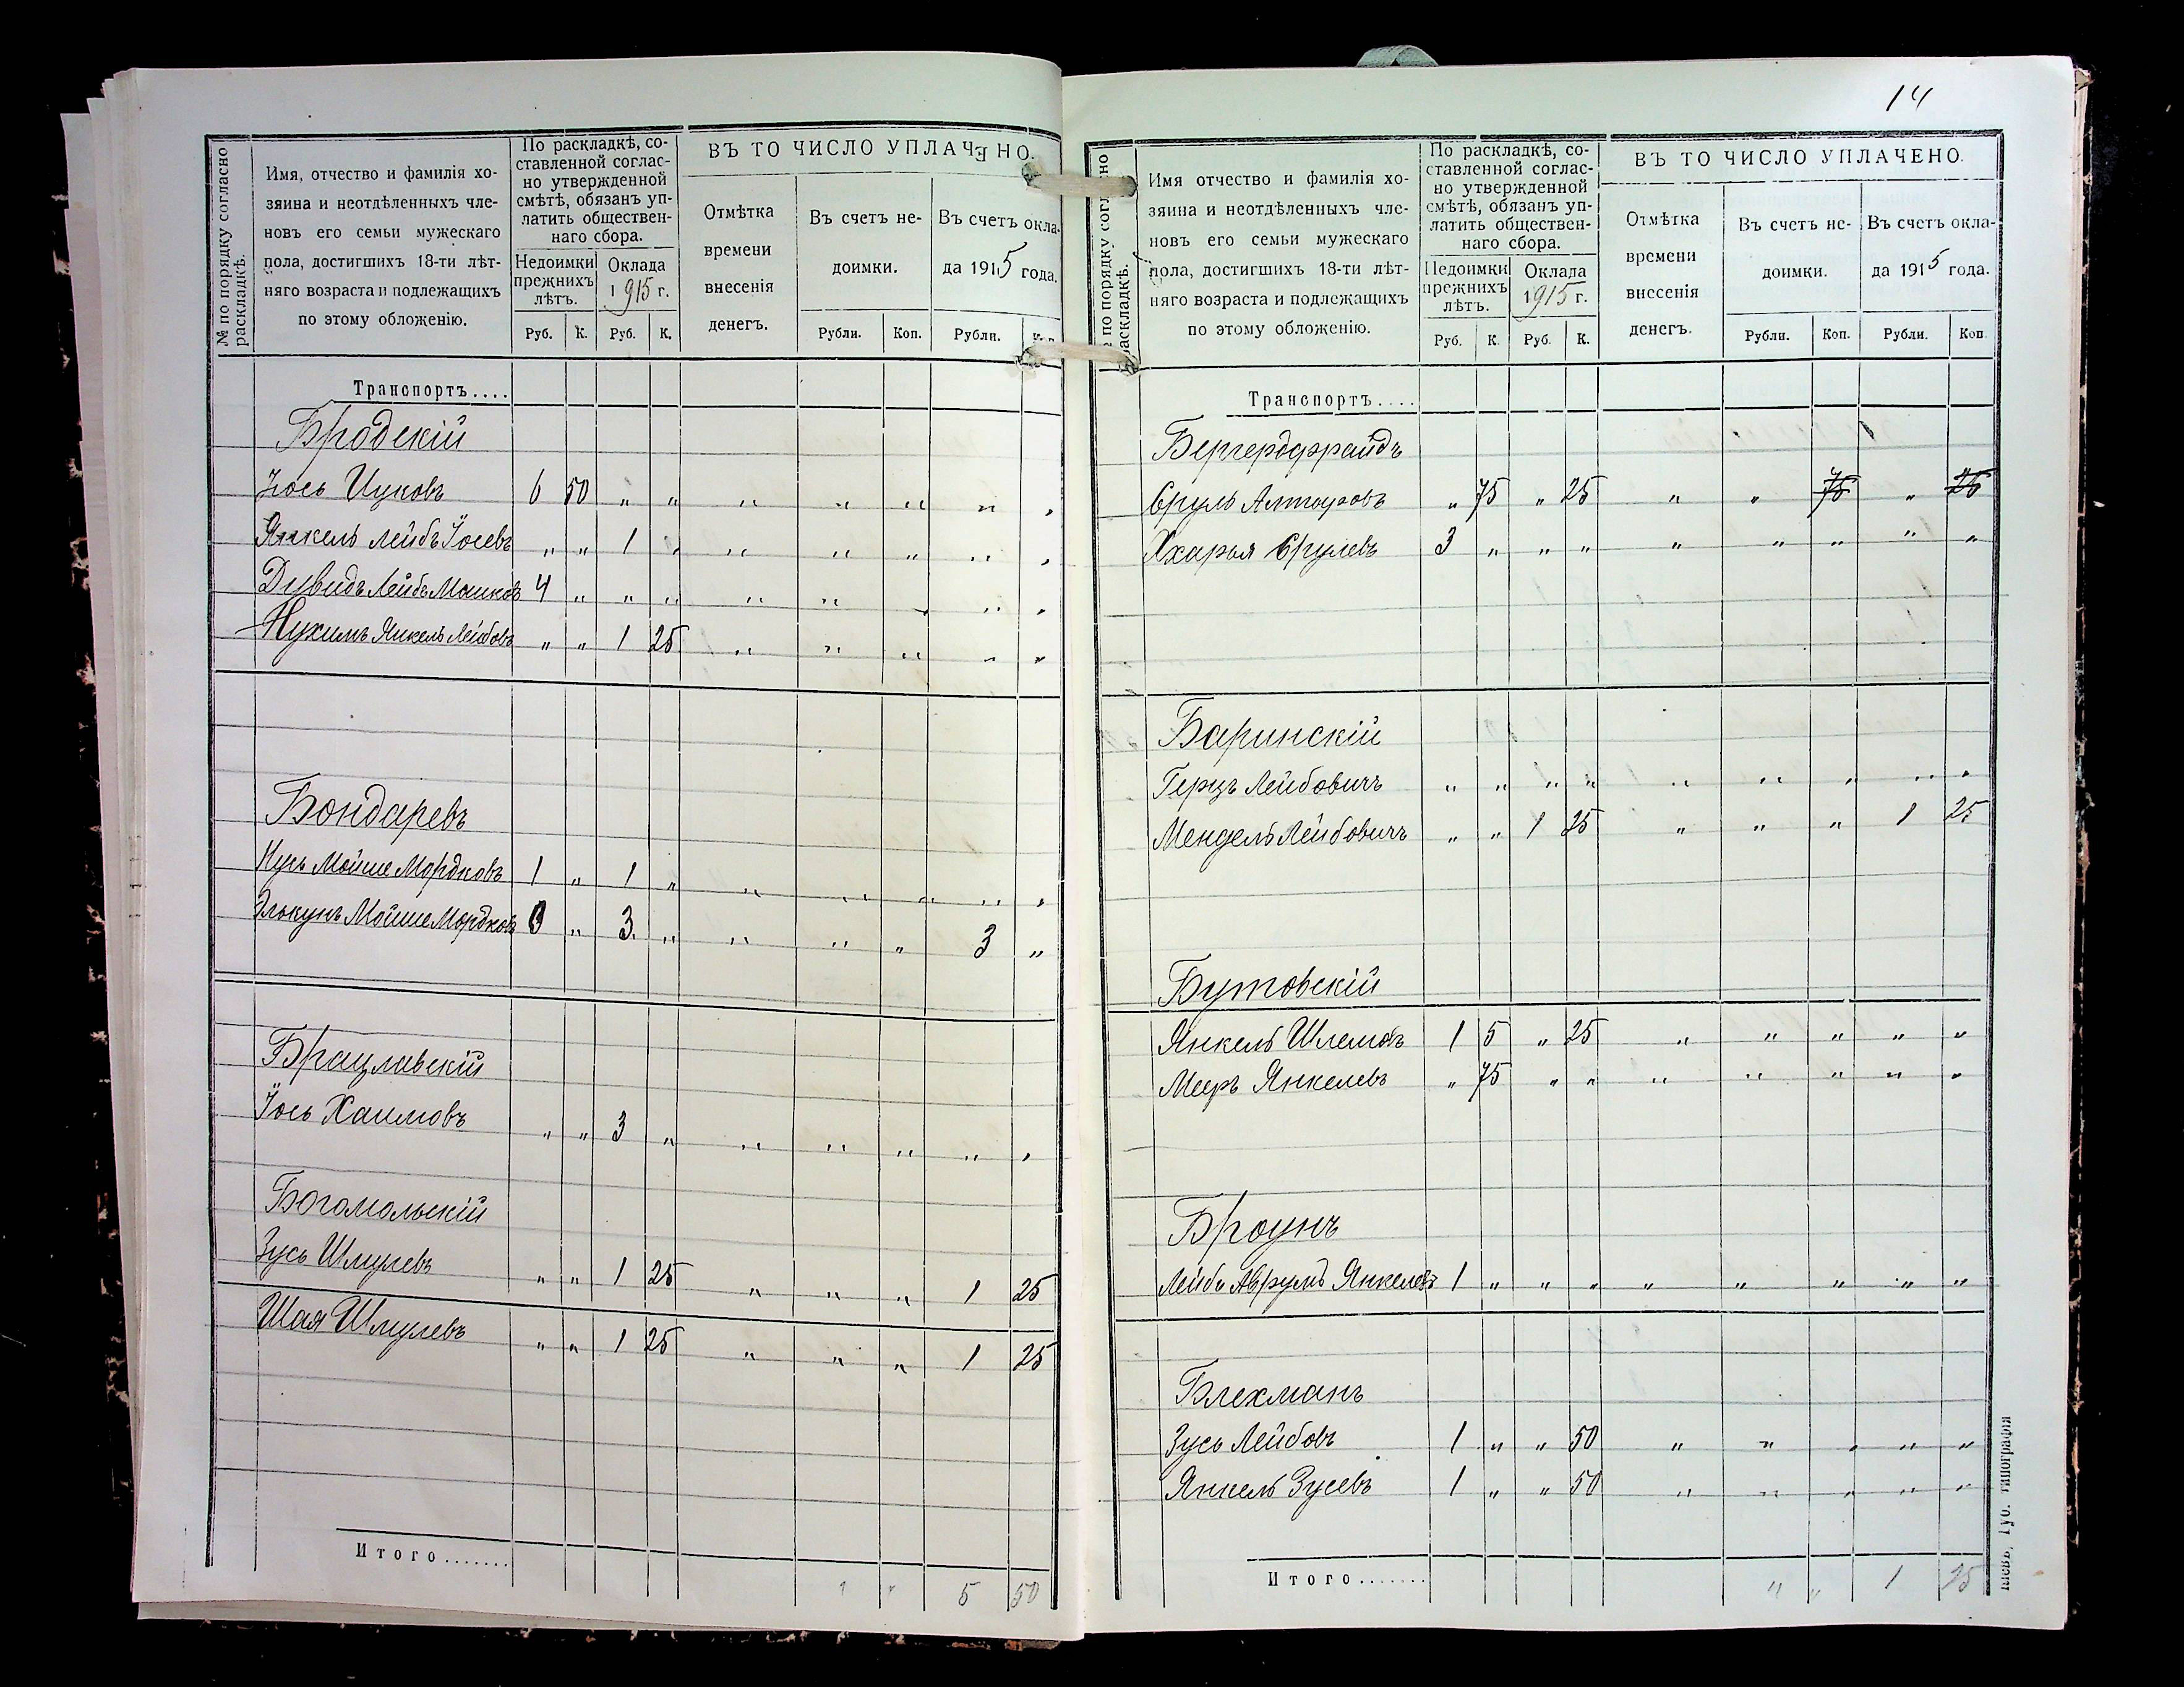 № по порядку согласно раскладкѣ.
Имя, отчество и фамилія хо-
зяина и неотдѣленныхъ чле-
новъ его семьи мужескаго
пола, достигшихъ 18-ти лѣт-
няго возраста и подлежащихъ
по этому обложенію.
По раскладкѣ, со-
ставленной соглас-
но утвержденной
смѣтѣ, обязанъ уп-
латить обществен-
наго сбора.
Недоимки прежнихъ лѣтъ.
Оклада 1915 г.
Руб. К. Руб. К.
ВЪ ТО ЧИСЛО УПЛАЧЕНО.
Отмѣтка
времени
внесенія
денегъ.
Въ счетъ не-
доимки.
Въ счетъ окла-
да 1915 года.
Рубли. Коп. Рубли.
Транспортъ....
Бродскій
Іось Ицковъ 6 50 " " " " " " "
Янкель Лейбъ Іосевъ " " 1 " " " " " "
Дувидъ Лейбъ Мошковъ 4 " " " " " " " "
Нухимъ Янкель Лейбовъ " " 1 25 " " " " "
Бондаревъ
Мойше Мордковъ 1 " 1 " " " " " "
Мойше Мордковъ " 3 " " " " 3 "
Брацлавскій
Іось Хаимовъ " " 3 " " " " " "
Богомольскій
Зусь Шмулевъ " " 1 25 " " " 1 25
Шая Шмулевъ " " 1 25 " " " 1 25
Итого....... " " 5 50
14
№ по порядку согласно раскладкѣ.
Имя отчество и фамилія хо-
зяина и неотдѣленныхъ чле-
новъ его семьи мужескаго
пола, достигшихъ 18-ти лѣт-
няго возраста и подлежащихъ
по этому обложенію.
По раскладкѣ, со-
ставленной соглас-
но утвержденной
смѣтѣ, обязанъ уп-
латить обществен-
наго сбора.
Недоимки прежнихъ лѣтъ.
Оклада 1915 г.
Руб. К. Руб. К.
ВЪ ТО ЧИСЛО УПЛАЧЕНО.
Отмѣтка
времени
внесенія
денегъ.
Въ счетъ не-
доимки.
Въ счетъ окла-
да 1915 года.
Рубли. Коп. Рубли. Коп.
Транспортъ....
Сруль " 75 " 25 " " 75 " 25
Срулевъ 3 " " " " " " " "
Баринскій
Герцъ Лейбовичъ " " " " " " " " "
Мендель Лейбовичъ " " 1 25 " " " 1 25
Бутовскій
Янкель Шлемовъ 1 5 " 25 " " " " "
Мееръ Янкелевъ " 75 " " " " " " "
Броунъ
Лейбъ Аврумъ Янкелевъ 1 " " " " " " " "
Блехманъ
Зусь Лейбовъ 1 " " 50 " " " " "
Янкель Зусевъ 1 " " 50 " " " " "
Итого....... " " 1 25
Губ. типографія